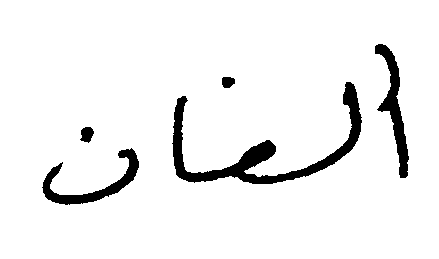 الضان